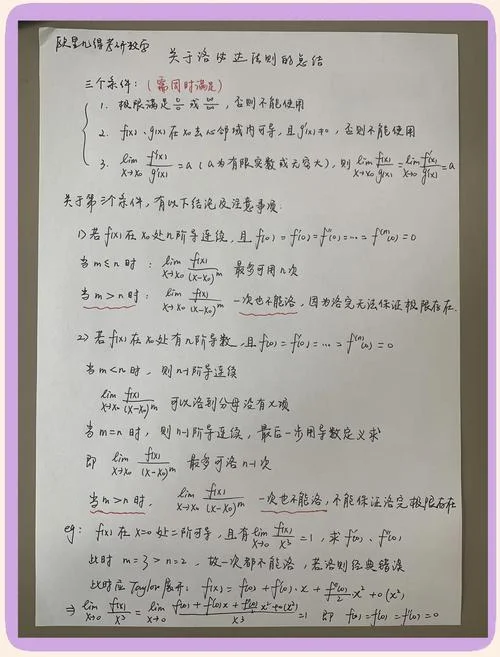 欧里几得考研数学
关于洛必达法则的总结
三个条件：(需同时满足)
1. 极限满足 0/0 或 ∞/∞，否则不能使用
2. f(x)、g(x) 在 x₀ 去心邻域内可导，且 g'(x)≠0，否则不能使用
3. lim x→x₀ f'(x)/g'(x) = a (a为有限实数或无穷大)，则 lim x→x₀ f(x)/g(x) = lim x→x₀ f'(x)/g'(x) = a
关于第三个条件，有以下结论及注意事项：
1) 若 f(x) 在 x₀ 处 n 阶导连续，且 f(0) = f'(0) = f''(0) = … = f⁽ⁿ⁾(0) = 0
当 m ≤ n 时： lim x→x₀ f(x)/(x-x₀)ᵐ 最多可用 n 次
当 m > n 时： lim x→x₀ f(x)/(x-x₀)ᵐ 一次也不能洛，因为洛完无法保证极限存在.
2) 若 f(x) 在 x₀ 处有 n 阶导数，且 f(0) = f'(0) = … = f⁽ⁿ⁾(0) = 0
当 m < n 时，则 n-1 阶导连续
lim x→x₀ f(x)/(x-x₀)ᵐ 可以洛到分母没有 x 项
当 m = n 时，则 n-1 阶导连续，最后一步用导数定义求
即 lim x→x₀ f(x)/(x-x₀)ᵐ 最多可洛 n-1 次
当 m > n 时， lim x→x₀ f(x)/(x-x₀)ᵐ 一次也不能洛，不能保证洛完极限存在
eg: f(x) 在 x=0 处二阶可导，且有 lim x→0 f(x)/x³ = 1，求 f'(0)、f''(0)
此时 m=3 > n=2，故一次都不能洛，若洛则经典错误
此时应 Taylor 展开： f(x) = f(0) + f'(0)·x + f''(0)/2 x² + o(x²)
⇒ lim x→0 f(x)/x³ = lim x→0 (f(0) + f'(0)x + f''(0)/2 x² + o(x²))/x³ = 1 即 f(0) = f'(0) = f''(0) = 0